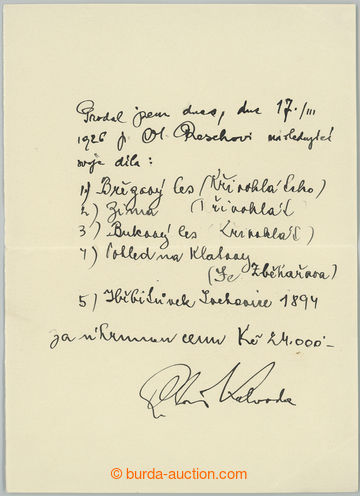 Prodal jsem dnes, dne 17./III
1926 p. Ol. Reschovi následující
svoje díla:
1) Březový les (Křivoklátsko)
2) Zima (Křivoklát)
3) Bukový les (Křivoklát)
4) Pohled na Klatovy
(Ze Zbĕkařova)
5) Hřbitůvek 1894
za úhrnnou cenu Kč 24.000-
Alois Kalvoda
© burda-auction.com